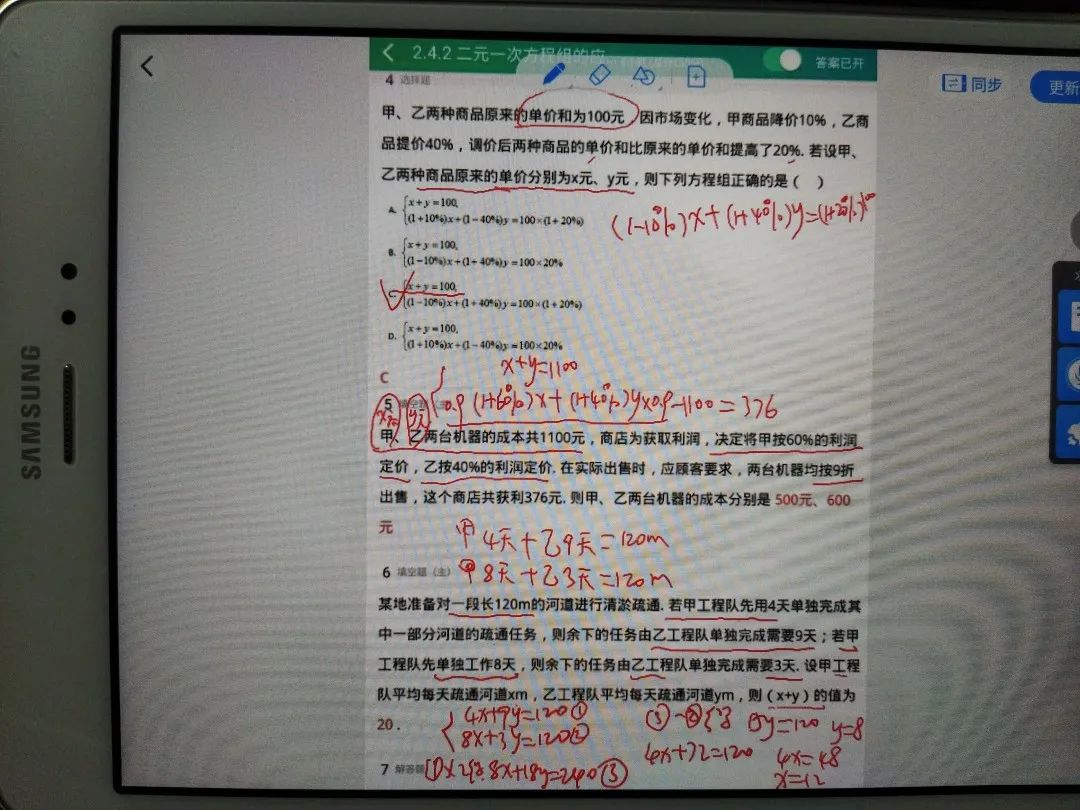 2.4.2 二元一次方程组的应
答案已开
同步
更新
4 选择题
甲、乙两种商品原来的单价和为100元，因市场变化，甲商品降价10%，乙商
品提价40%，调价后两种商品的单价和比原来的单价和提高了20%. 若设甲、
乙两种商品原来的单价分别为x元、y元，则下列方程组正确的是（ ）
(1-10%)x+(1+40%)y=(1+20%)100
A. {x+y=100,
(1+10%)x+(1-40%)y=100×(1+20%)
B. {x+y=100,
(1-10%)x+(1+40%)y=100×20%
C. {x+y=100,
(1-10%)x+(1+40%)y=100×(1+20%)
D. {x+y=100,
(1+10%)x+(1-40%)y=100×20%
C
x+y=1100
0.9(1+60%)x+(1+40%)y×0.9-1100=376
5 填空题（主）
x元 y元
甲、乙两台机器的成本共1100元，商店为获取利润，决定将甲按60%的利润
定价，乙按40%的利润定价. 在实际出售时，应顾客要求，两台机器均按9折
出售，这个商店共获利376元. 则甲、乙两台机器的成本分别是 500元、600
元
甲4天+乙9天=120m
6 填空题（主） 甲8天+乙3天=120m
某地准备对一段长120m的河道进行清淤疏通. 若甲工程队先用4天单独完成其
中一部分河道的疏通任务，则余下的任务由乙工程队单独完成需要9天；若甲
工程队先单独工作8天，则余下的任务由乙工程队单独完成需要3天. 设甲工程
队平均每天疏通河道xm，乙工程队平均每天疏通河道ym，则（x+y）的值为
20.
{4x+9y=120①
8x+3y=120②
③-②得 15y=120 y=8
4x+72=120 4x=48
x=12
7 解答题 ①×2得.8x+18y=240③
SAMSUNG